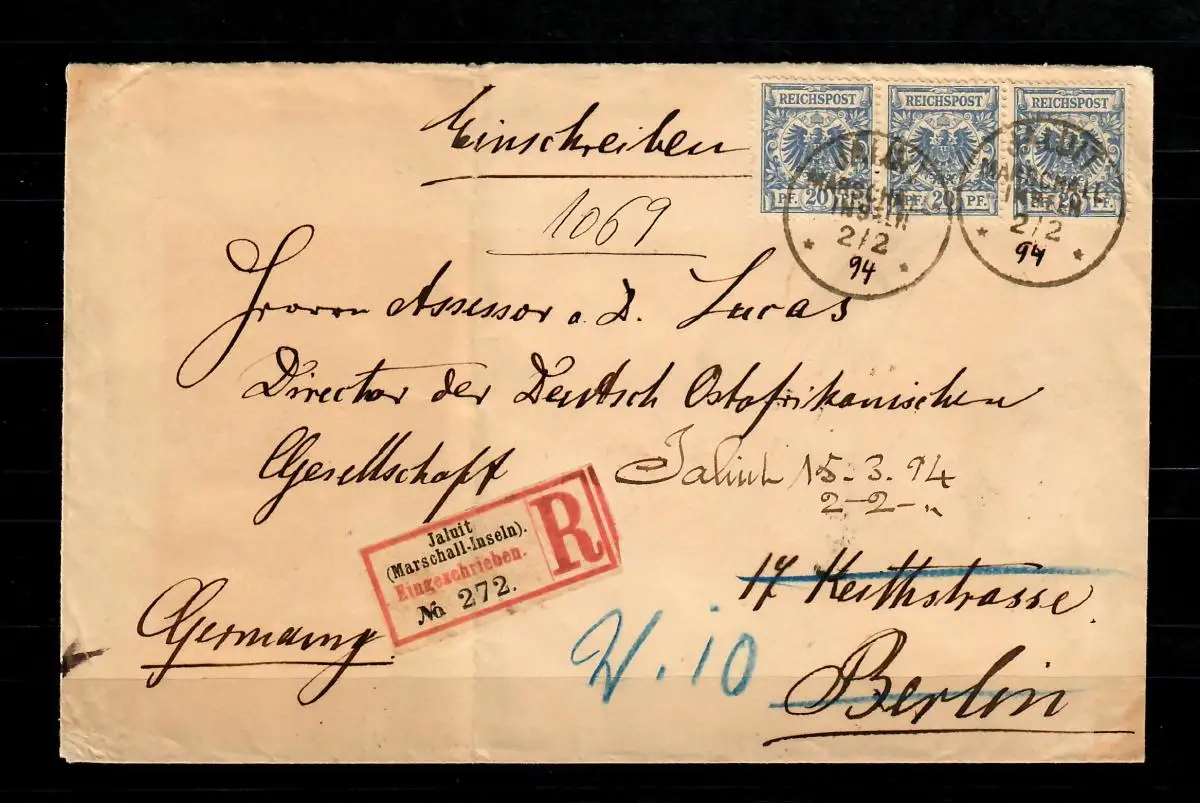 Einschreiben
REICHSPOST REICHSPOST REICHSPOST
PF. 20 PF. PF. 20 PF. PF. 20 PF.
JALUIT
MARSCHALL
INSELN
2/2
94
JALUIT
MARSCHALL
INSELN
2/2
94
1069
Herrn Assessor a. D. Lucas
Director der Deutsch Ostafrikanischen
Gesellschaft
Jaluit 15.3.94
2-2-"
Jaluit
(Marschall-Inseln).
Eingeschrieben.
No. 272.
R
17 Keithstrasse.
Germany.
W.10
Berlin